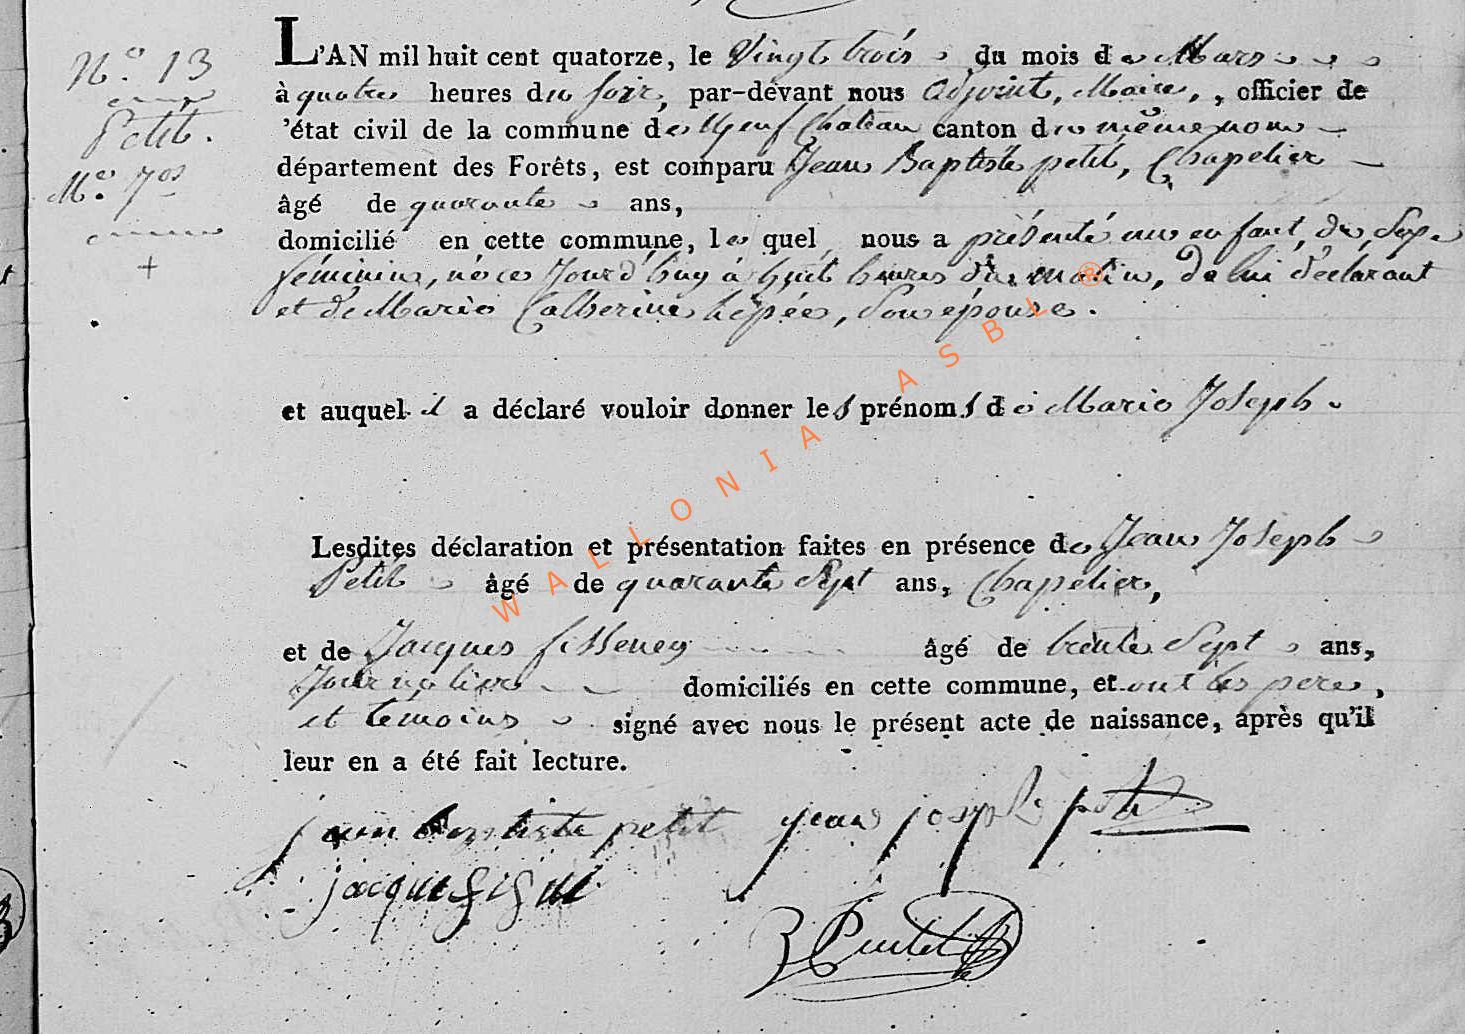 N.o 13
Petit.
M.e Jos
+
L'AN mil huit cent quatorze, le Vingt trois du mois de Mars
à quatre heures du soir, par-devant nous adjoint, Maire, , officier de
'état civil de la commune de Neufchateau canton du même nom
département des Forêts, est comparu Jean Baptiste petit, Chapelier
âgé de quarante ans,
domicilié en cette commune, le quel nous a présenté un enfant, du Sexe
féminin, née ce Jourd'huy à huit heures du matin, de lui déclarant
et de Marie Catherine hépée, Son épouse.
et auquel il a déclaré vouloir donner les prénoms de Marie Joseph
Lesdites déclaration et présentation faites en présence de Jean Joseph
Petit âgé de quarante Sept ans, Chapelier,
et de Jacques âgé de trente Sept ans,
Journalier domiciliés en cette commune, et ont les pere,
et témoins signé avec nous le présent acte de naissance, après qu'il
leur en a été fait lecture.
jean baptiste petit jean joseph petit
jacque
WALLONIA ASBL ®